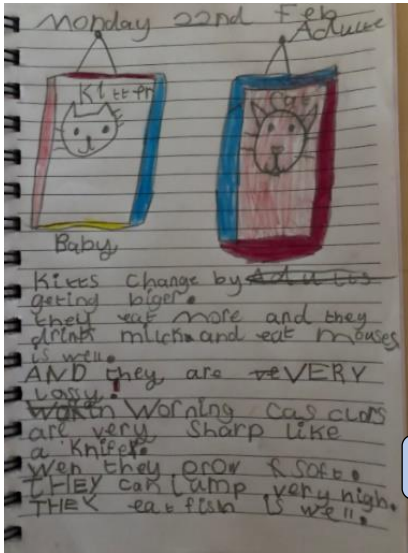 Monday 22nd Feb
Adulte
Kitten
Cat
Baby
Kitts change by
geting biger.
they eat more and they
drink milck. and eat mouses
is well.
AND they are VERY
Worning cas claws
are very sharp like
a knifer.
Wen they grow & soft.
THEY can Jump very high.
THEY eat fish is well.